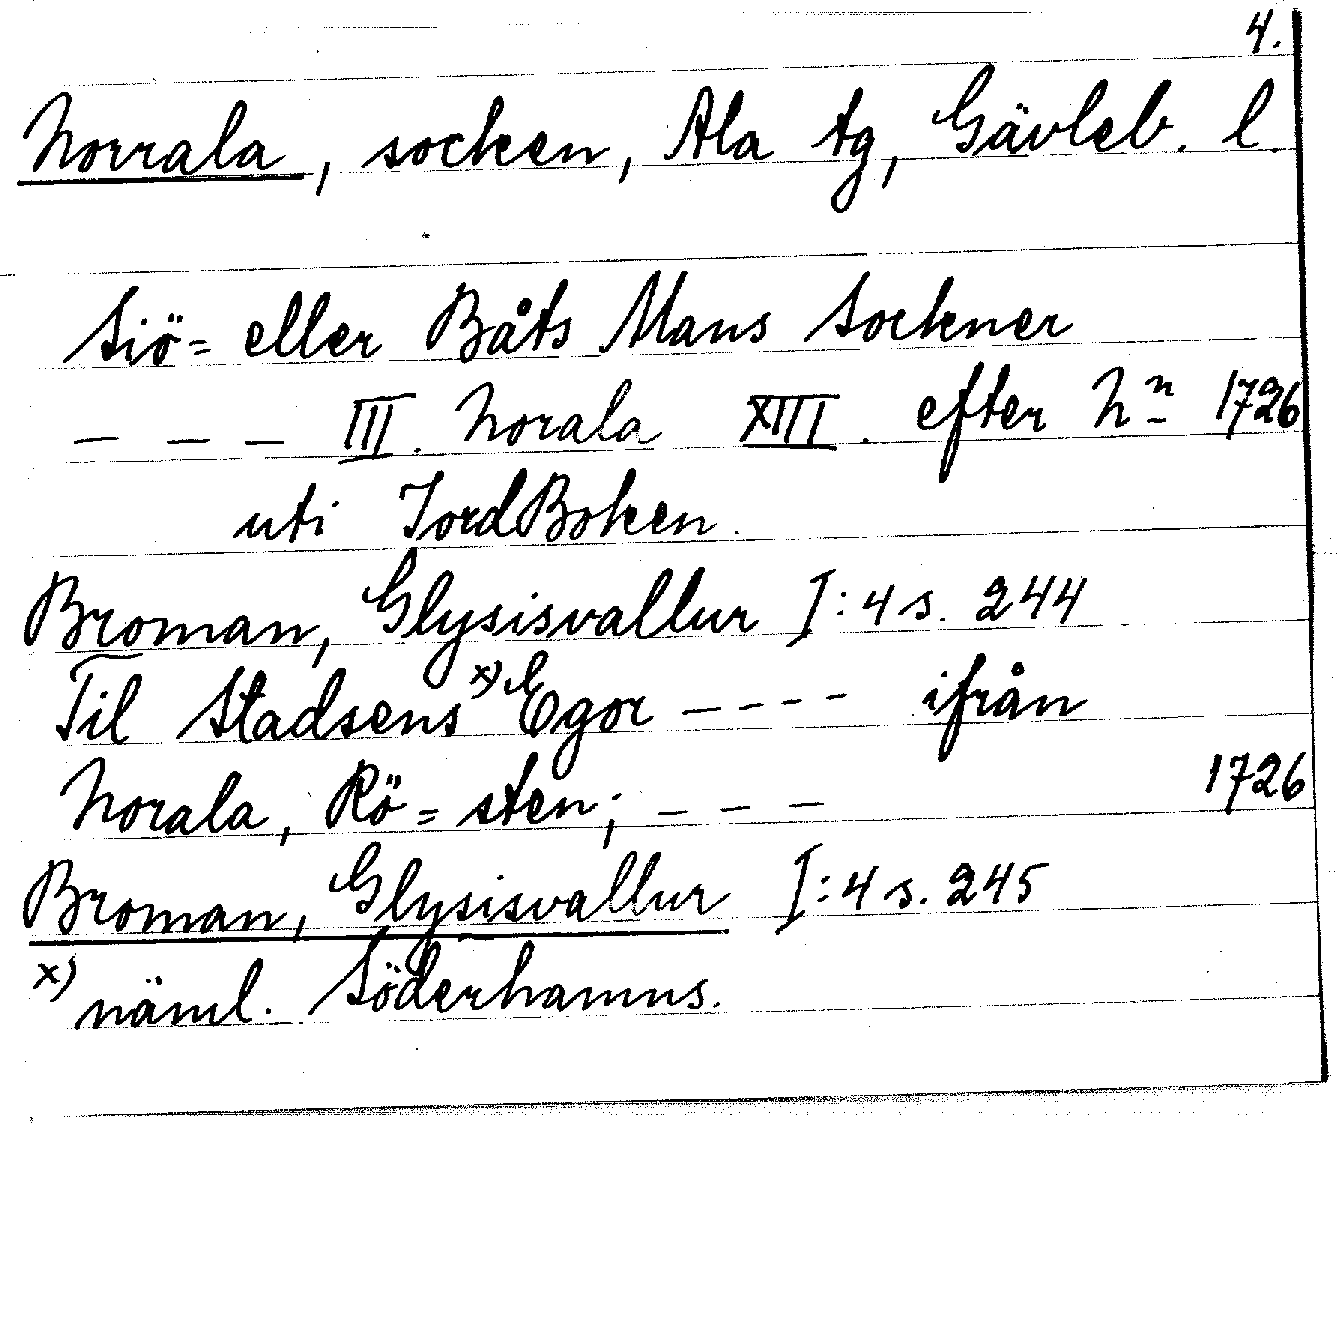 4.
Norrala, socken, Ala tg, Gävleb. l.
Siö= eller Båts Mans Sockner
— — — III. Norala XIII. efter Nn 1726
uti JordBoken.
Broman, Glysisvallur I:4 s. 244
Til Stadsens x) Egor - - - - ifrån
Norala, Rö=sten; — — — 1726
Broman, Glysisvallur I:4 s. 245
x) näml. Söderhamns.